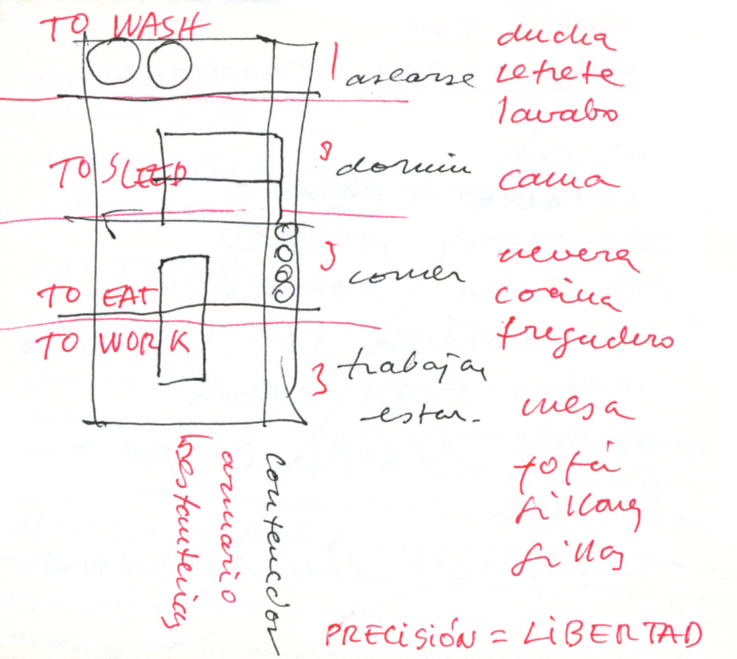 TO WASH
1 asearse
ducha
retrete
lavabo
TO SLEEP
dormir
cama
3 comer
nevera
cocina
fregadero
TO EAT
TO WORK
3 trabajar
estar.
mesa
sofá
sillones
sillas
contenedor
armario
estanterias
PRECISIÓN = LIBERTAD